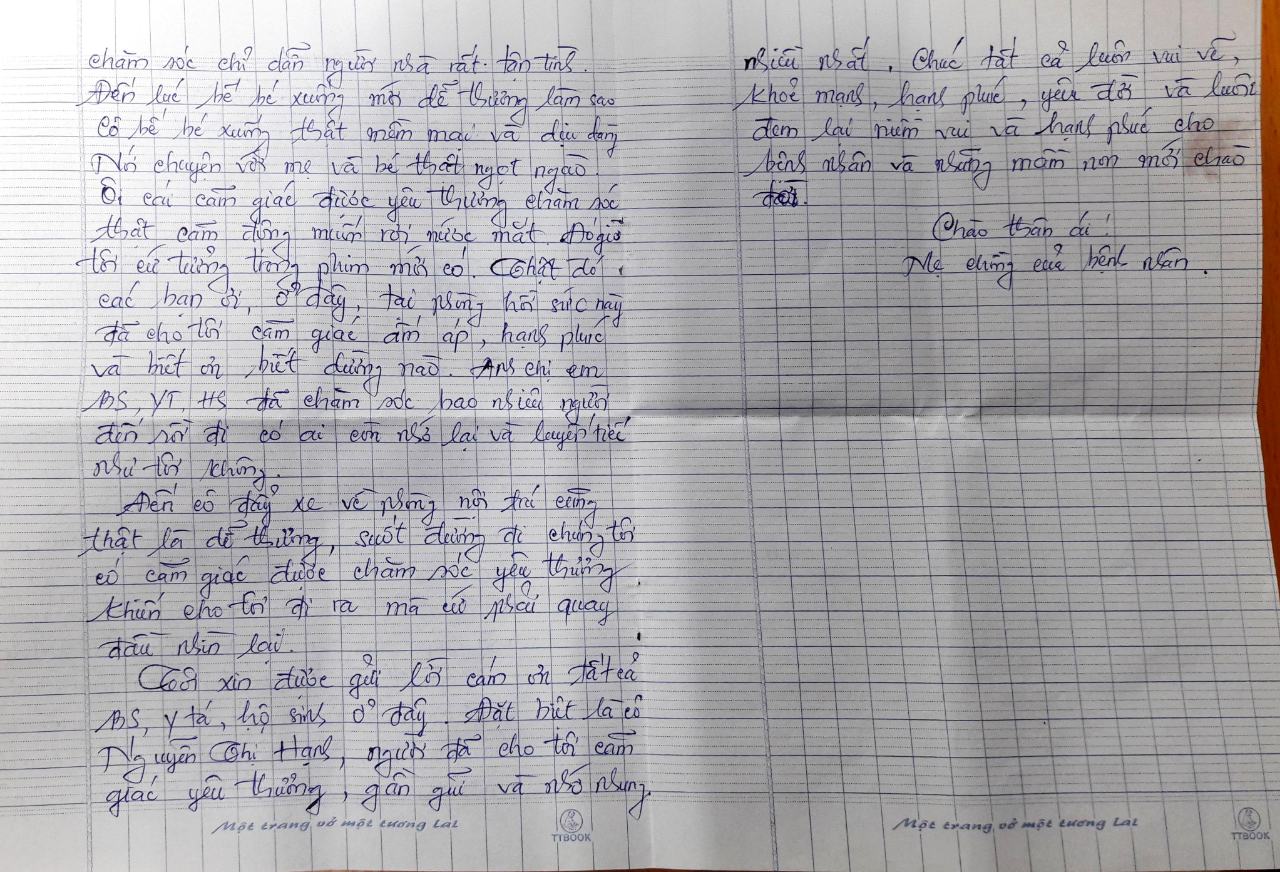 chăm sóc chỉ dẫn người nhà rất tận tình.
Đến lúc bế bé xuống mới dễ thương làm sao
cô bế bé xuống thật mềm mại và dịu dàng
Nó chuyện với mẹ và bé thật ngọt ngào.
Ôi cái cảm giác được yêu thương chăm sóc
thật cảm động muốn rơi nước mắt. Đó giờ
tôi cứ tưởng trong phim mới có. Thật đó
các bạn ơi, ở đây, tại phòng hồi sức này
đã cho tôi cảm giác ấm áp, hạnh phúc
và biết ơn biết dường nào. Anh chị em
BS, YT, HS đã chăm sóc bao nhiêu người
đến rồi đi có ai còn nhớ lại và luyến tiếc
như tôi không.
Đến cô đẩy xe về phòng nội trú cũng
thật là dễ thương, suốt đường đi chúng tôi
có cảm giác được chăm sóc yêu thương
khiến cho tôi đi ra mà cứ phải quay
đầu nhìn lại.
Tôi xin được gửi lời cám ơn tất cả
BS, y tá, hộ sinh ở đây. Đặt biệt là cô
Nguyễn Thị Hạnh, người đã cho tôi cảm
giác yêu thương, gần gũi và nhớ nhung
Một trang vở một tương lai
TTBOOK
nhiều nhất. Chúc tất cả luôn vui vẻ,
khoẻ mạnh, hạnh phúc, yêu đời và luôn
đem lại niềm vui và hạnh phúc cho
bệnh nhân và những mầm non mới chào
đời.
Chào thân ái!
Mẹ chồng của bệnh nhân.
Một trang vở một tương lai
TTBOOK